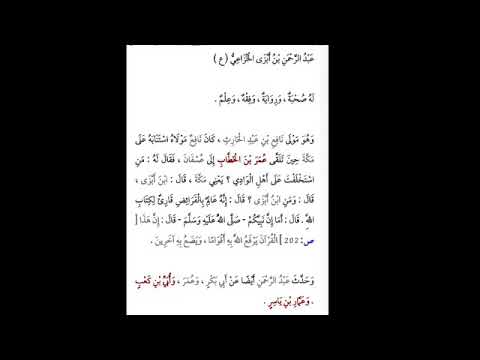 عَبْدُ الرَّحْمَنِ بْنُ أَبْزَى الْخُزَاعِيُّ ( ع )
لَهُ صُحْبَةٌ ، وَرِوَايَةٌ ، وَفِقْهٌ ، وَعِلْمٌ .
وَهُوَ مَوْلَى نَافِعِ بْنِ عَبْدِ الْحَارِثِ ، كَانَ نَافِعٌ مَوْلَاهُ اسْتَنَابَهُ عَلَى
مَكَّةَ حِينَ تَلَقَّى عُمَرَ بْنَ الْخَطَّابِ إِلَى عُسْفَانَ ، فَقَالَ لَهُ : مَنِ
اسْتَخْلَفْتَ عَلَى أَهْلِ الْوَادِي ؟ يَعْنِي مَكَّةَ ، قَالَ : ابْنَ أَبْزَى ،
قَالَ : وَمَنِ ابْنُ أَبْزَى ؟ قَالَ : إِنَّهُ عَالِمٌ بِالْفَرَائِضِ قَارِئٌ لِكِتَابِ
اللَّهِ . قَالَ : أَمَا إِنَّ نَبِيَّكُمْ - صَلَّى اللَّهُ عَلَيْهِ وَسَلَّمَ - قَالَ : إِنَّ هَذَا [
ص: 202 ] الْقُرْآنَ يَرْفَعُ اللَّهُ بِهِ أَقْوَامًا ، وَيَضَعُ بِهِ آخَرِينَ .
وَحَدَّثَ عَبْدُ الرَّحْمَنِ أَيْضًا عَنْ أَبِي بَكْرٍ ، وَعُمَرَ ، وَأُبَيِّ بْنِ كَعْبٍ
، وَعَمَّارِ بْنِ يَاسِرٍ .